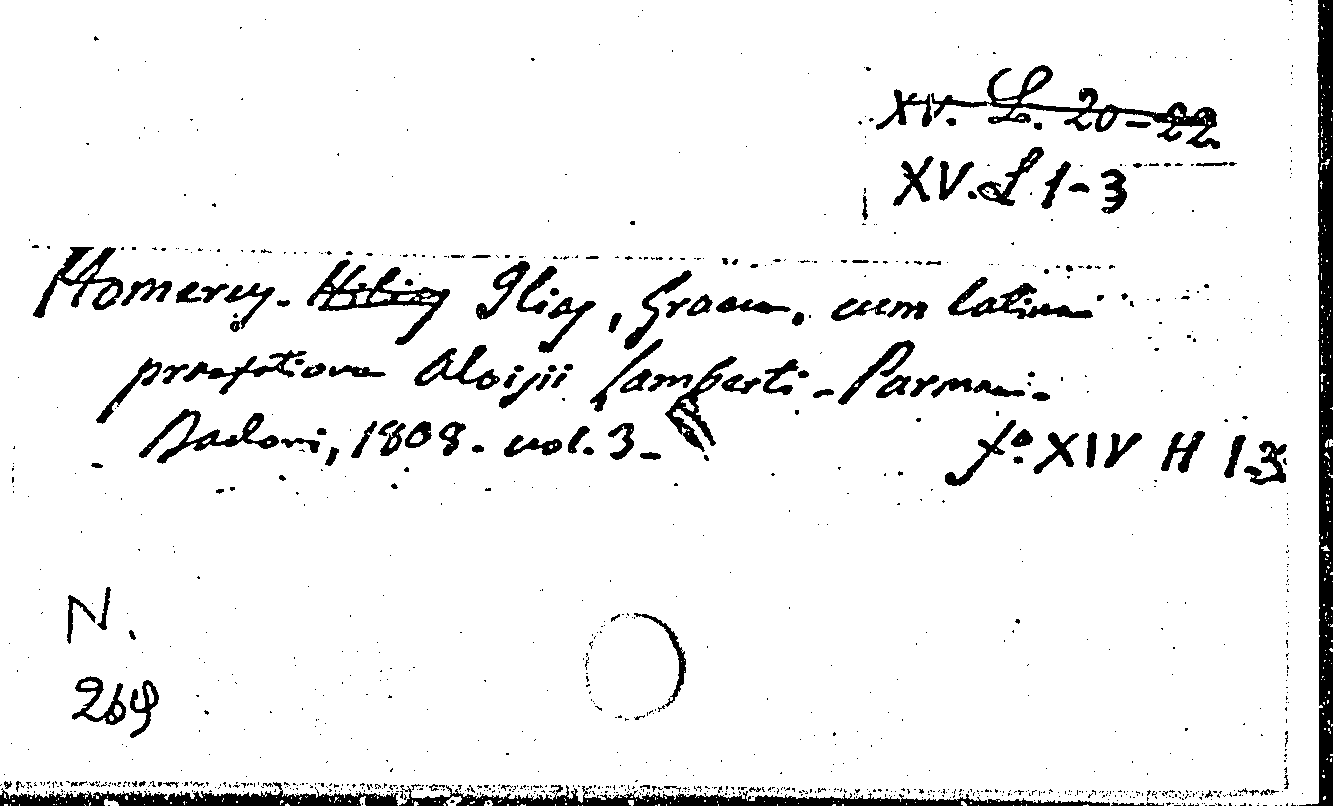 XV. L. 20-22
XV. L 1-3
Homerus. Hilias Ilias, Graece, cum latina
praefatione Aloisii Lamberti - Parmae -
Bodoni, 1808. vol. 3 -
fº XIV H 1-3
N.
269